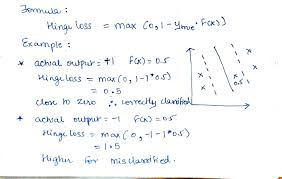 Formula :
Hinge loss = max (0, 1 - Ytrue * F(x))
Example :
* actual output = +1 F(x) = 0.5
Hinge loss = max (0, 1 - 1*0.5)
= 0.5
close to zero ∴ correctly classified
* actual output = -1 F(x) = 0.5
Hinge loss = max (0, 1 - -1*0.5)
= 1.5
Higher for misclassified.
x
x
x
x
0.5